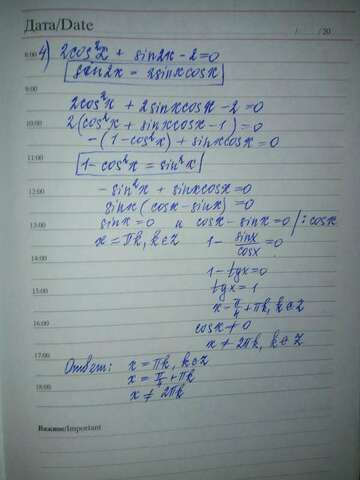 Дата/Date
/ /20
8:00 4) 2cos²x + sin2x - 2 = 0
sin2x = 2sinxcosx
9:00
2cos²x + 2sinxcosx - 2 = 0
10:00 2(cos²x + sinxcosx - 1) = 0
-(1 - cos²x) + sinxcosx = 0
11:00 1 - cos²x = sin²x
12:00 -sin²x + sinxcosx = 0
sinx(cosx - sinx) = 0
13:00 sinx = 0 и cosx - sinx = 0 /: cosx
x = πk, k∈Z 1 - sinx/cosx = 0
14:00
1 - tgx = 0
15:00 tgx = 1
x = π/4 + πk, k∈Z
16:00 cosx ≠ 0
x ≠ 2πk, k∈Z
17:00 Ответ: x = πk, k∈Z
x = π/4 + πk
18:00 x ≠ 2πk
Важно/Important